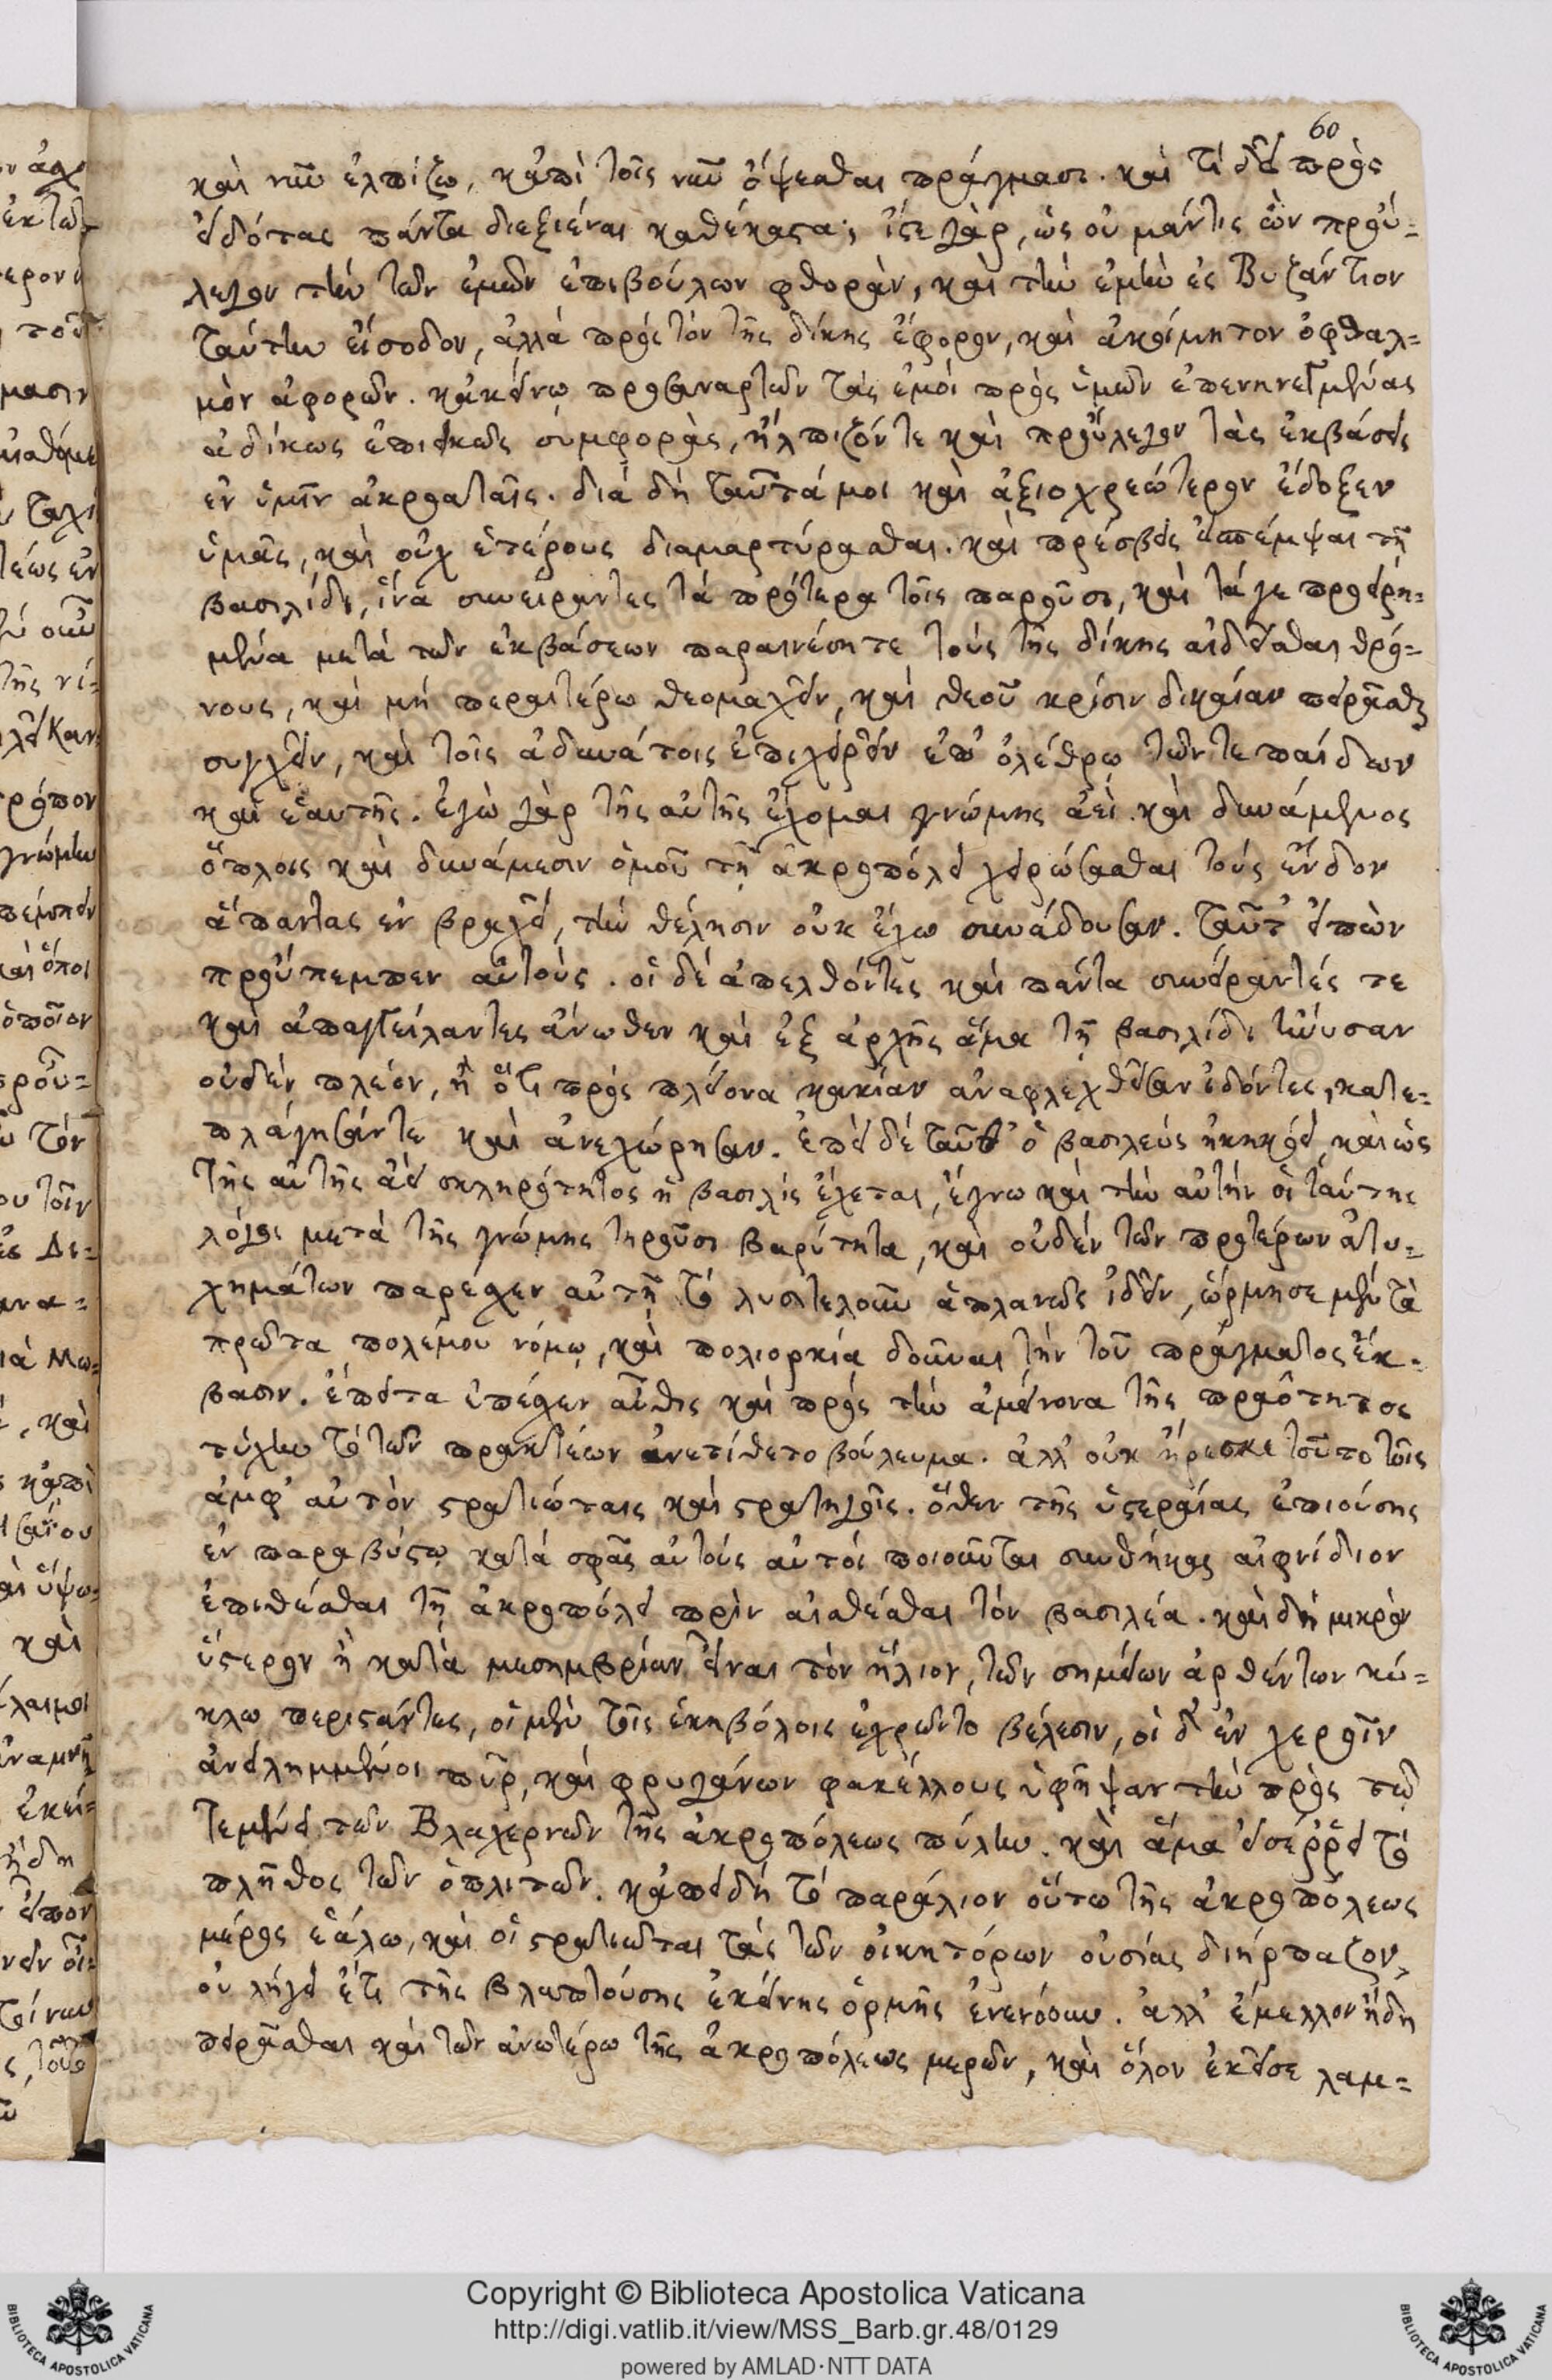 60
καὶ νῦν ἐλπίζω, κἀπὶ τοῖς νῦν ὄψεσθαι πράγμασι. καὶ τί δεῖ πρὸς
εἰδότας πάντα διεξιέναι καθέκαστα; ἴστε γὰρ, ὡς οὐ μάντις ὢν πρού=
λεγον τὴν τῶν ἐμῶν ἐπιβούλων φθορὰν, καὶ τὴν ἐμὴν ἐς Βυζάντιον
ταύτην εἴσοδον, ἀλλὰ πρὸς τὸν τῆς δίκης ἔφορον, καὶ ἀκοίμητον ὀφθαλ=
μὸν ἀφορῶν. κἀκείνῳ προσαναρτῶν τὰς ἐμοὶ πρὸς ὑμῶν ἐπενηνεγμένας
ἀδίκως ἐπιεικῶς συμφορὰς, ἤλπιζόν τε καὶ προύλεγον τὰς ἐκβάσεις
ἐν ὑμῖν ἀκροαταῖς. διὰ δὴ ταῦτά μοι καὶ ἀξιοχρεώτερον ἔδοξεν
ὑμᾶς, καὶ οὐχ ἑτέρους διαμαρτύρασθαι. καὶ πρέσβεις εἰσπέμψαι τῇ
βασιλίδι, ἵνα συνείραντες τὰ πρότερα τοῖς παροῦσι, καὶ τά γε προειρη=
μένα μετὰ τῶν ἐκβάσεων παραινέσητε τοὺς τῆς δίκης αἰδεῖσθαι θρό=
νους, καὶ μὴ περαιτέρω θεομαχεῖν, καὶ θεοῦ κρίσιν δικαίαν πειρᾶσθαι
συγχεῖν, καὶ τοῖς ἀδυνάτοις ἐπιχειρεῖν ἐπ' ὀλέθρω τῶν τε παίδων
καὶ ἑαυτῆς. ἐγὼ γὰρ τῆς αὐτῆς ἔχομαι γνώμης ἀεὶ. καὶ δυνάμενος
ὅπλοις καὶ δυνάμεσιν ὁμοῦ τῇ ἀκροπόλει χειρώσασθαι τοὺς ἔνδον
ἅπαντας ἐν βραχεῖ, τὴν θέλησιν οὐκ ἔχω συνάδουσαν. ταῦτ' εἰπὼν
προύπεμπεν αὐτούς. οἱ δὲ ἀπελθόντες καὶ πάντα συνείραντές τε
καὶ ἀπαγγείλαντες ἄνωθεν καὶ ἐξ ἀρχῆς ἅμα τῇ βασιλίδι ἤνυσαν
οὐδὲν πλέον, ἢ ὅτι πρὸς πλείονα κακίαν ἀναφλεχθεῖσαν ἰδόντες, κατε=
πλάγησάν τε καὶ ἀνεχώρησαν. ἐπεὶ δὲ ταῦθ' ὁ βασιλεὺς ἠκηκόει, καὶ ὡς
τῆς αὐτῆς ἀεὶ σκληρότητος ἡ βασιλὶς ἔχεται, ἔγνω καὶ τὴν αὐτὴν οἱ ταύτης
λόγοι μετὰ τῆς γνώμης τηροῦσι βαρύτητα, καὶ οὐδὲν τῶν προτέρων ἀτυ=
χημάτων παρέσχεν αὐτῇ τὸ λυσιτελοῦν ἀπλανῶς ἰδεῖν, ὥρμησε μὲν τὰ
πρῶτα πολέμου νόμῳ, καὶ πολιορκία δοῦναι τὴν τοῦ πράγματος ἔκ=
βασιν. ἔπειτα ἐπέσχεν αὖθις καὶ πρὸς τὴν ἀμείνονα τῆς πραότητος
τύχην τὸ τῶν πρακτέων ἀνετίθετο βούλευμα. ἀλλ' οὐκ ἤρεσκε τοῦτο τοῖς
ἀμφ' αὐτὸν στρατιώταις καὶ στρατηγοῖς. ὅθεν τῆς ὑστεραίας ἐπιούσης
ἐν παραβύστῳ κατὰ σφᾶς αὐτοὺς αὐτοὶ ποιοῦνται συνθήκας αἰφνίδιον
ἐπιθέσθαι τῇ ἀκροπόλει πρὶν αἰσθέσθαι τὸν βασιλέα. καὶ δὴ μικρὸν
ὕστερον ἢ κατὰ μεσημβρίαν εἶναι τὸν ἥλιον, τῶν σημείων ἀρθέντων κύ=
κλω περιστάντες, οἱ μὲν τοῖς ἑκηβόλοις ἐχρῶντο βέλεσιν, οἱ δ' ἐν χερσὶν
ἀνειλημμένοι πῦρ, καὶ φρυγάνων φακέλλους ὑφῆψαν τὴν πρὸς τῷ
τεμένει τῶν Βλαχερνῶν τῆς ἀκροπόλεως πύλην. καὶ ἅμα εἰσέρρει τὸ
πλῆθος τῶν ὁπλιτῶν. κἀπειδὴ τὸ παράλιον οὕτω τῆς ἀκροπόλεως
μέρος ἑάλω, καὶ οἱ στρατιῶται τὰς τῶν οἰκητόρων οὐσίας διήρπαζον,
οὐ λήγει ἔτι τῆς βλαπτούσης ἐκείνης ὁρμῆς ἐνενόουν. ἀλλ' ἔμελλον ἤδη
πειρᾶσθαι καὶ τῶν ἀνωτέρω τῆς ἀκροπόλεως μερῶν, καὶ ὅλον ἐκεῖσε λαμ=
Copyright © Biblioteca Apostolica Vaticana
http://digi.vatlib.it/view/MSS_Barb.gr.48/0129
powered by AMLAD·NTT DATA
BIBLIOTECA APOSTOLICA VATICANA
BIBLIOTECA APOSTOLICA VATICANA